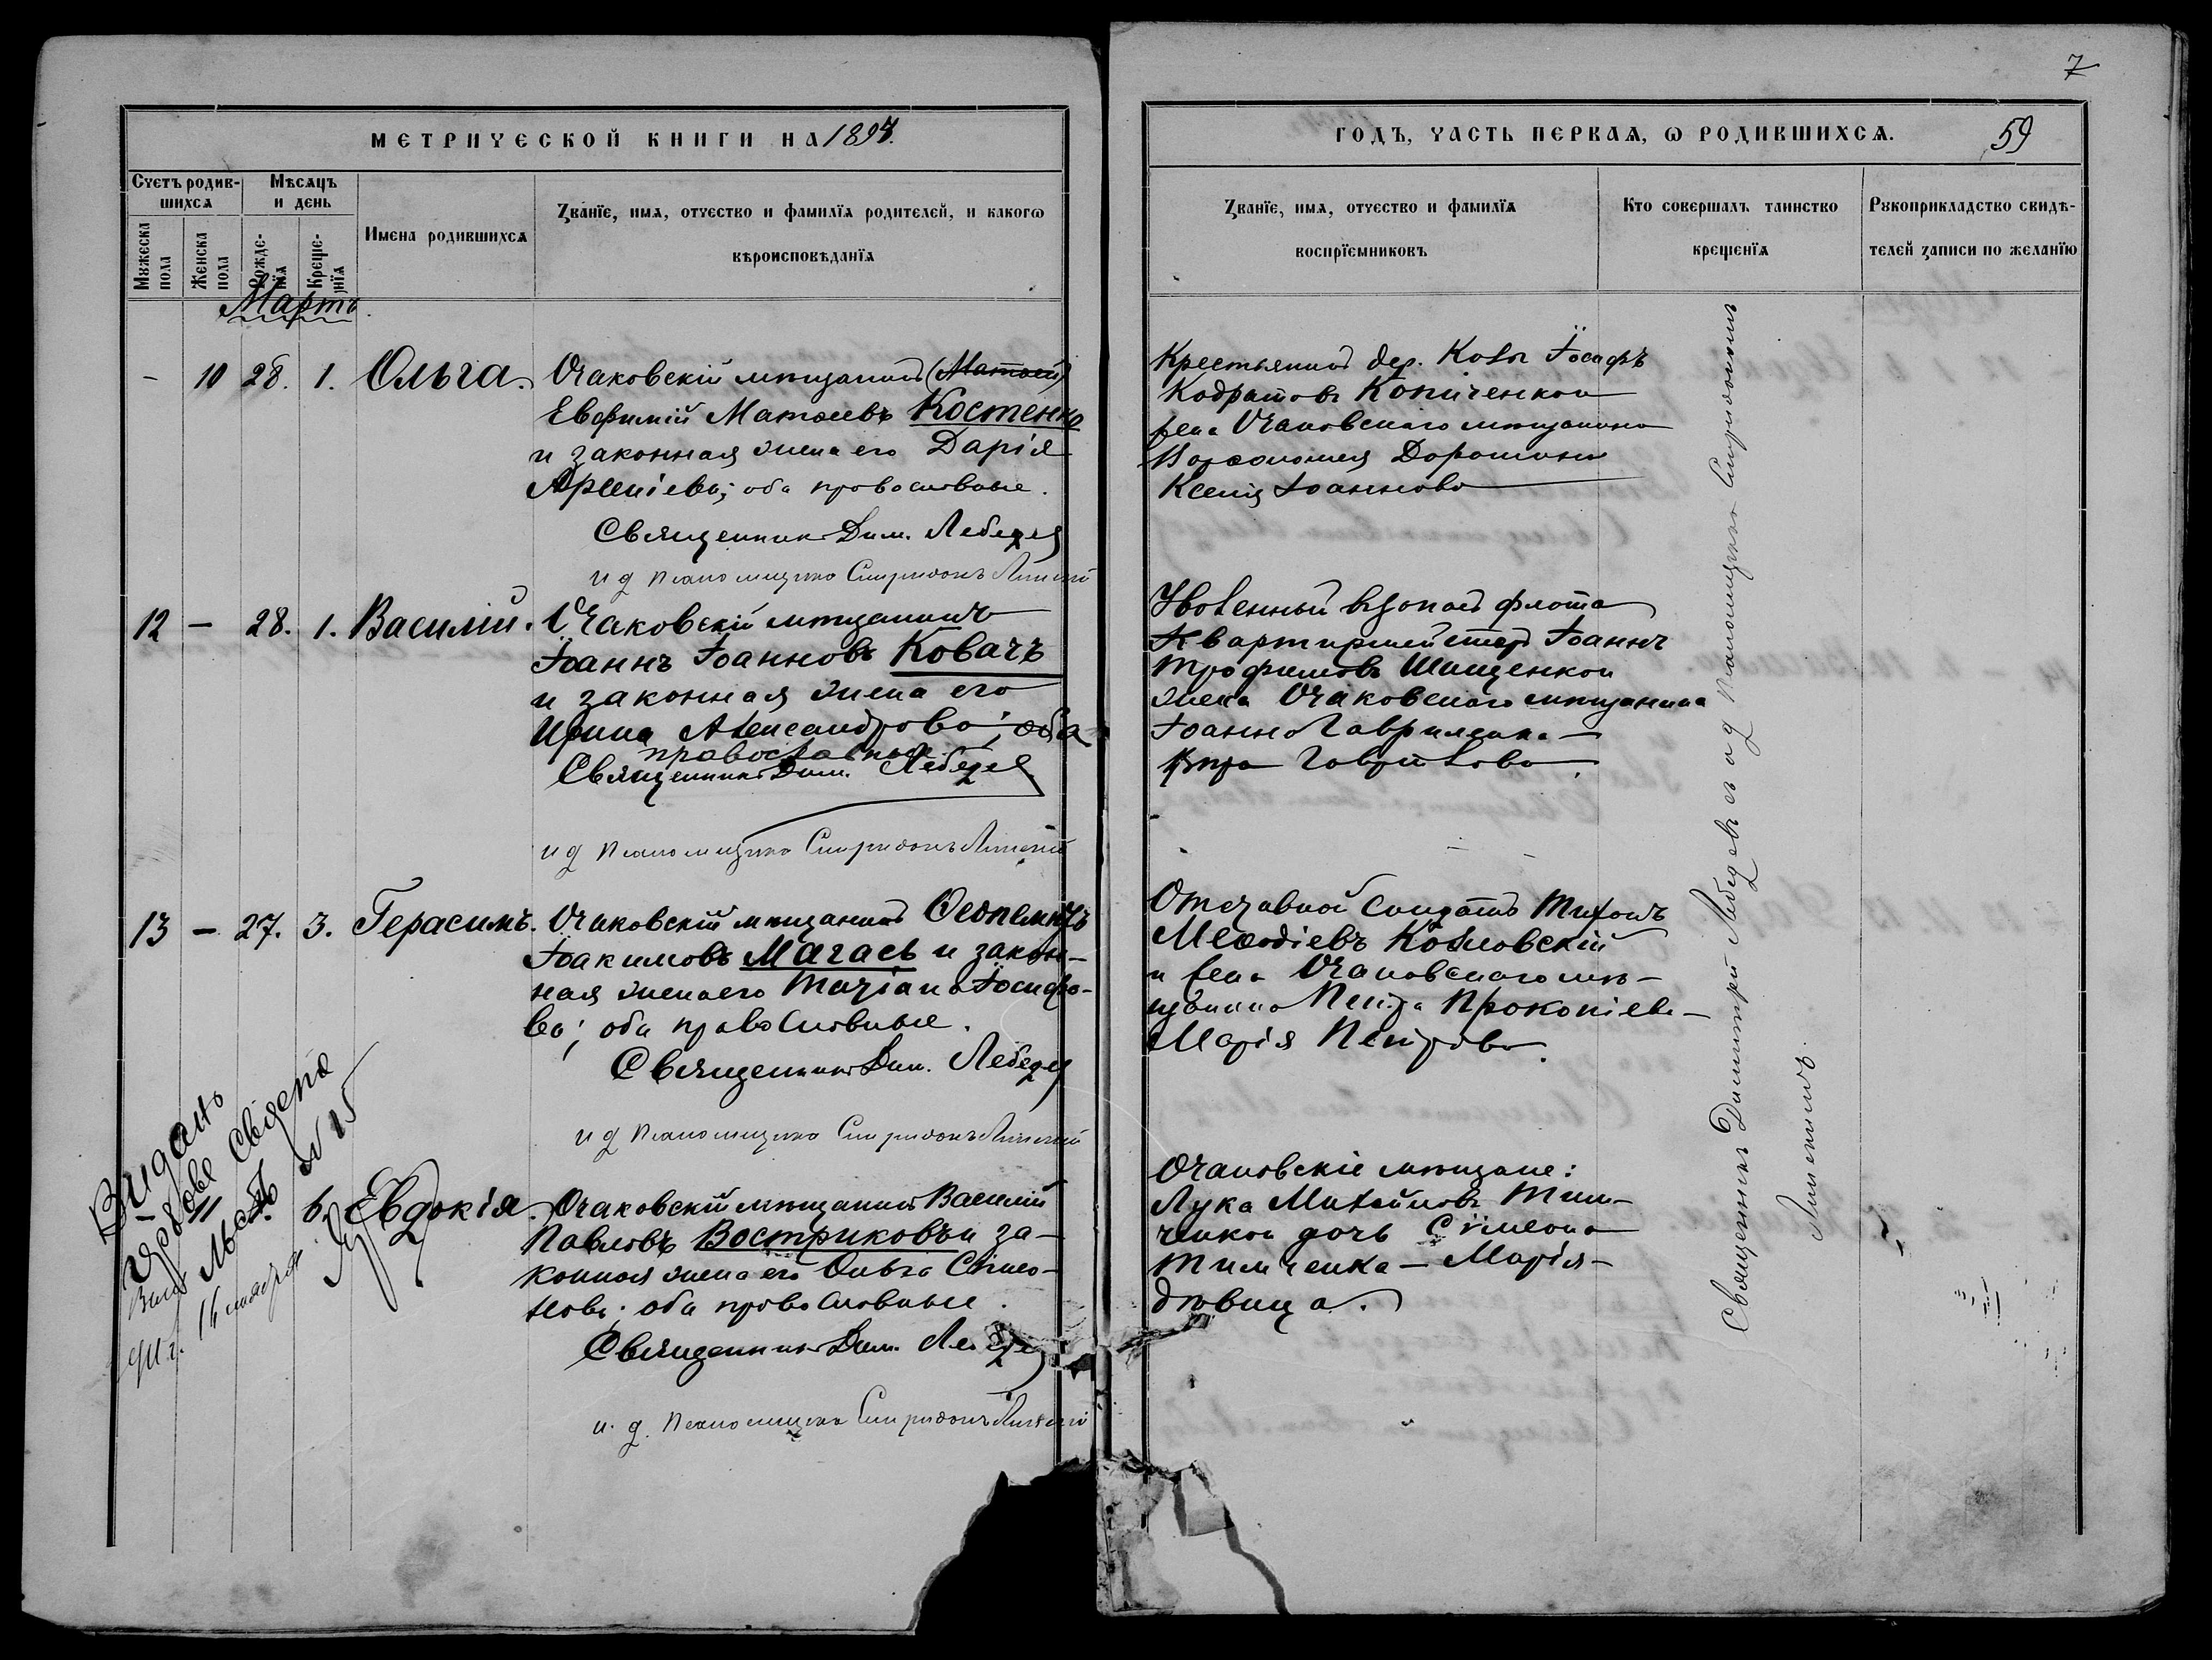 7
МЕТРИЧЕСКОЙ КНИГИ НА 1894.
ГОДЪ, ЧАСТЬ ПЕРВАЯ, Ѡ РОДИВШИХСЯ.
59
Счетъ родив-
шихся
Мѣсяцъ
и день
Мужеска
пола
Женска
пола
Рожде-
нїя
Креще-
нїя
Имена родившихся
Званїе, имя, отчество и фамилїя родителей, и какогѡ
вѣроисповѣданїя
Званїе, имя, отчество и фамилїя
воспрїемниковъ
Кто совершалъ таинство
крещенїя
Рукоприкладство свидѣ-
телей записи по желанїю
Мартъ
- 10 28. 1. Ольга.
Очаковскій мѣщанинъ (Матѳей)
Евфимій Матѳеевъ Костенко
и законная жена его Дарія
Арсеніева; оба православные.
Священникъ Дим. Лебедев
и д псаломщика Спиридонъ
Крестьянинъ дер. Іосифъ
Кодратовъ Копиченко и
жена Очаковскаго мѣщанина
Ксенія Іоаннова
12 - 28. 1. Василій.
Очаковскій мѣщанинъ
Іоаннъ Іоанновъ Ковачъ
и законная жена его
Ирина Александрова; оба
православные
Священникъ Дим. Лебедев
и д псаломщика Спиридонъ
Уволенный въ запасъ флота
Квартирмейстеръ Іоаннъ
Трофимовъ Шищенко и
жена Очаковскаго мѣщанина
Іоанна Гавриленка -
Вѣра Гаврилова
13 - 27. 3. Герасимъ.
Очаковскій мѣщанинъ Ѳеопемптъ
Іоакимовъ Магась и закон-
ная жена его Татіана Іосифо-
ва; оба православные.
Священникъ Дим. Лебедев
и д псаломщика Спиридонъ
Отставной солдатъ Тихонъ
Меѳодіевъ Козловскій
и жена Очаковскаго мѣ-
щанина Петра Прокопіева -
Марія Петрова.
Виданъ
Свідența
N 15
- 11 6. Евдокія.
Очаковскій мѣщанинъ Василій
Павловъ Востриковъ и за-
конная жена его Ольга Сѵмео-
нова; оба православные.
Священникъ Дим.
и. д. псаломщика Спиридонъ
Очаковскіе мѣщане:
Лука Михайловъ Тим-
ченко и дочь Сѵмеона
Тимченка - Марія -
дѣвица.
Священникъ Димитрій Лебедевъ съ и д псаломщика Спиридономъ